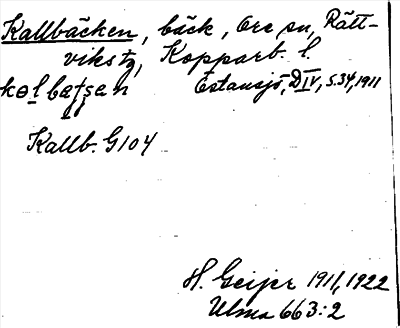 Kallbäcken, bäck, Ore sn, Rätt-
viks tg, Kopparb. l.
Östansjö, DIV, S.34, 1911
Kallb. G104
H. Geijer 1911, 1922
Ulma 663:2